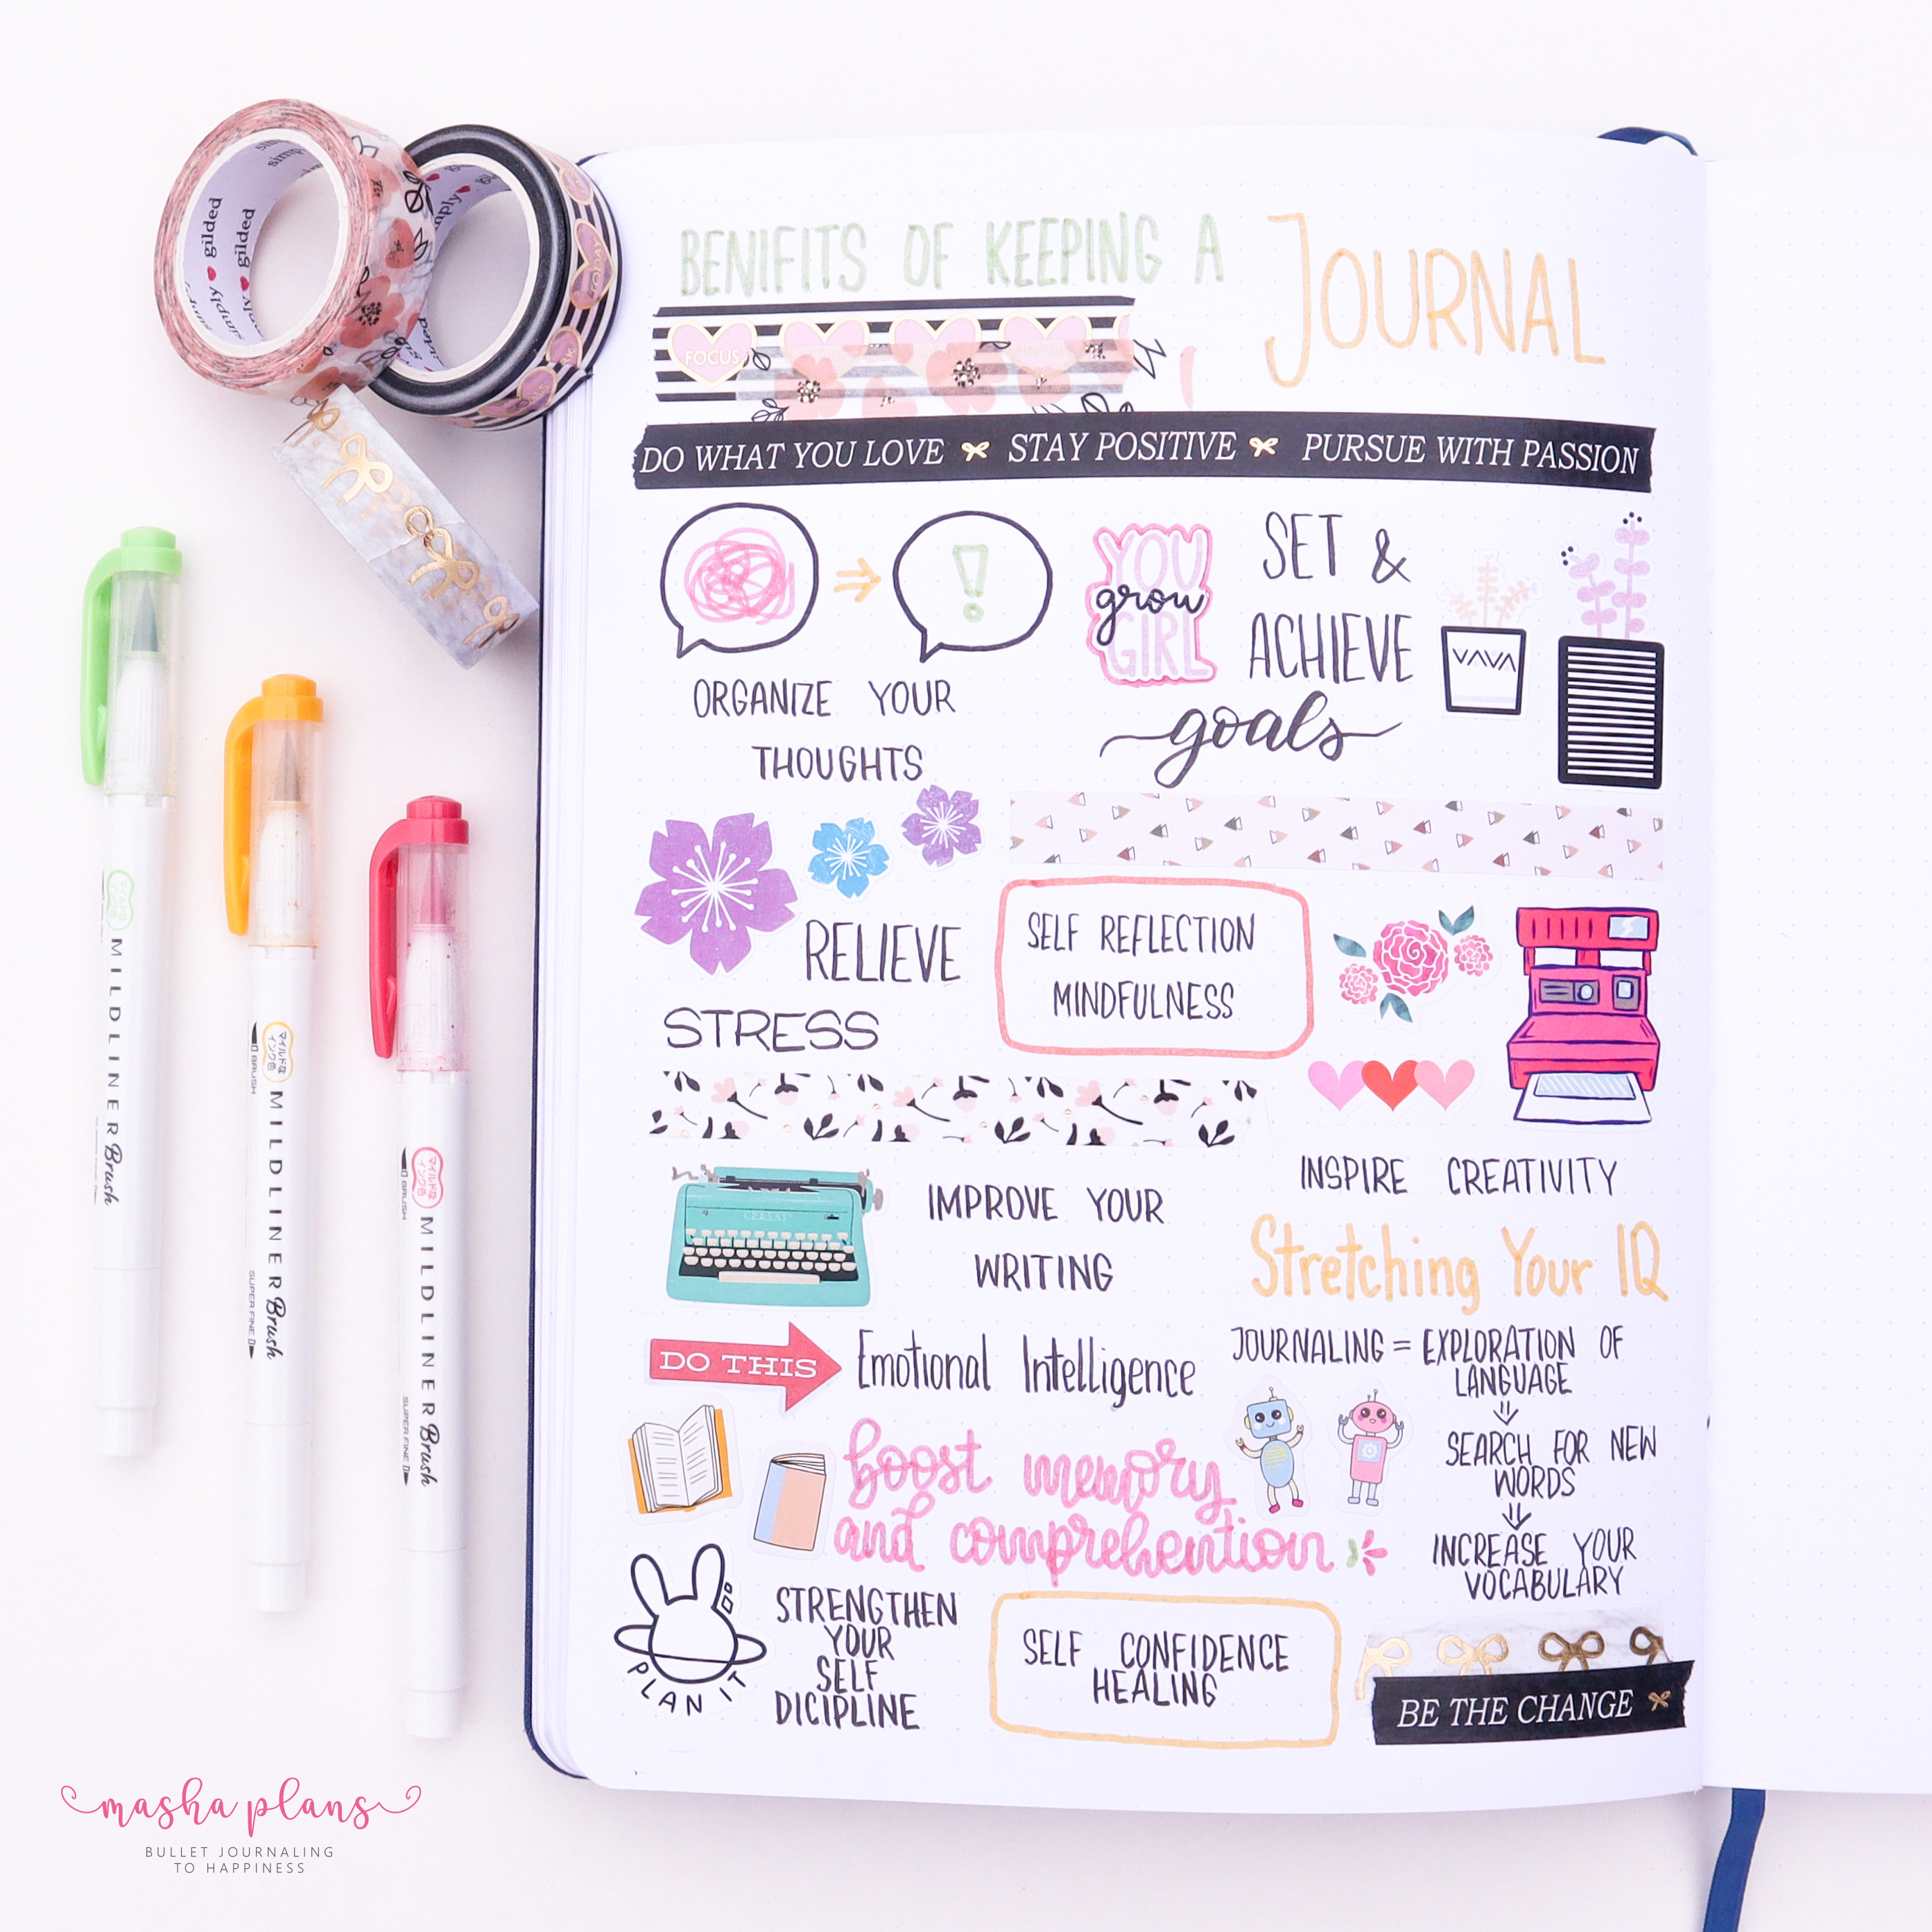 BENIFITS OF KEEPING A JOURNAL
FOCUS
DO WHAT YOU LOVE STAY POSITIVE PURSUE WITH PASSION
ORGANIZE YOUR
THOUGHTS
YOU
grow
GIRL
SET &
ACHIEVE
goals
RELIEVE
STRESS
SELF REFLECTION
MINDFULNESS
IMPROVE YOUR
WRITING
INSPIRE CREATIVITY
Stretching Your IQ
DO THIS
Emotional Intelligence
JOURNALING = EXPLORATION OF
LANGUAGE
SEARCH FOR NEW
WORDS
INCREASE YOUR
VOCABULARY
boost memory
and comprehention
PLAN IT
STRENGTHEN
YOUR
SELF
DICIPLINE
SELF CONFIDENCE
HEALING
BE THE CHANGE
simply gilded
simply gilded
TODAY
マイルドな
インク色
MILDLINER Brush
マイルドな
インク色
BRUSH
MILDLINER Brush
SUPER FINE
マイルドな
インク色
BRUSH
MILDLINER Brush
SUPER FINE
masha plans
BULLET JOURNALING
TO HAPPINESS